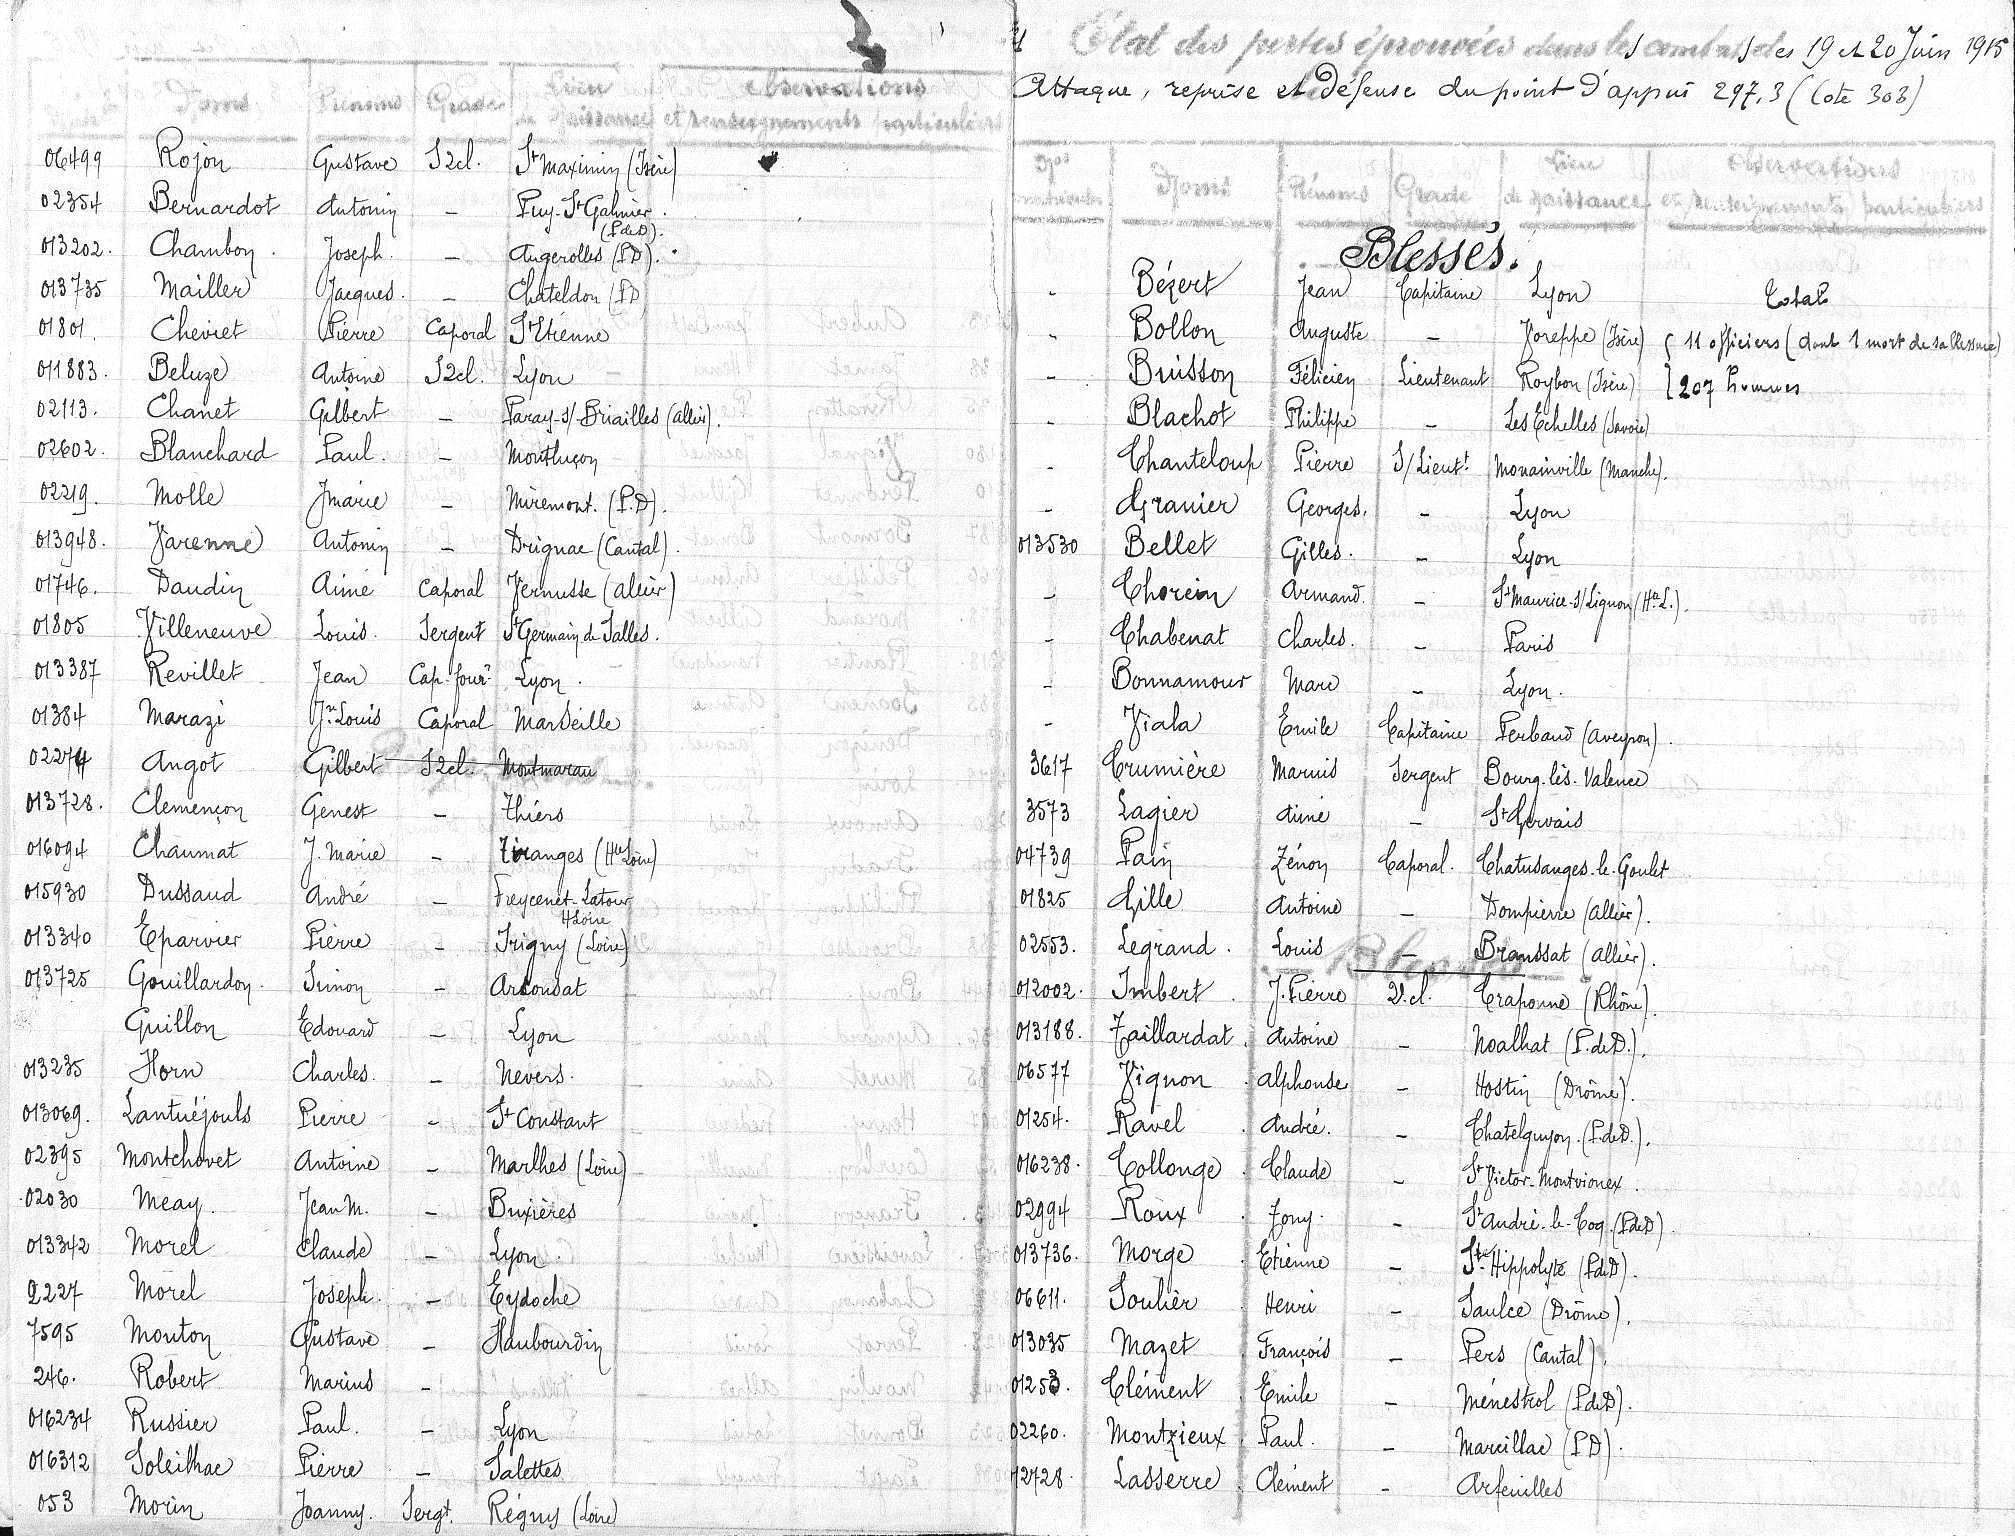 Noms Prénoms Grade Lieu de Naissance Observations et renseignements particuliers
06499 Rojon Gustave S2cl. St Maximin (Isère)
02354 Bernardot Antonin - Puy-St Galmier (P de D).
013202. Chambon Joseph. - Augerolles (PD).
013735 Mailler Jacques. - Chateldon (PD)
01801. Chevret Pierre Caporal St Etienne
011883. Beluze Antoine S2cl. Lyon
02113. Chanet Gilbert - Paray-s/-Briailles (Allier).
02602. Blanchard Paul. - Montluçon
02219. Molle Jmarie - Miremont. (P.D).
013948. Varenne Antonin - Drignac (Cantal).
01746. Daudin Aimé Caporal Vernusse (Allier)
01805 Villeneuve Louis. Sergent St Germain de Salles.
013387 Revillet Jean Cap. four. Lyon.
01384 Marazi Jn Louis Caporal Marseille
02274 Angot Gilbert S2cl. Montmarau
013728. Clemençon Genest - Thiers
016094 Chaumat J. Marie - Tiranges (Hte Loire)
015930 Dussaud André - Freycenet-Latour H Loire
013340 Eparvier Pierre - Irigny (Loire)
013725 Gouillardon. Simon - Arconsat
Guillon Edouard - Lyon
013235 Horn Charles. - Nevers.
013069. Lantuéjouls Pierre - St Constant
02395 Montchovet Antoine - Marlhes (Loire)
02030 Méay. Jean M. - Buxières
013342 Morel Claude - Lyon.
2227 Morel Joseph. - Eydoche
7595 Mouton Gustave - Haubourdin
246. Robert Marius -
016234 Russier Paul. - Lyon
016312 Soleilhac Pierre - Salettes
053 Morin Joanny. Sergt. Régny (Loire)
Etat des pertes éprouvées dans les combats des 19 et 20 Juin 1915
Attaque, reprise et défense du point d'appui 297,3 (Cote 303)
Nos matricules Noms Prénoms Grade Lieu de naissance Observations et renseignements particuliers
Blessés.
- Bézert Jean Capitaine Lyon Total
- Bollon Auguste - Voreppe (Isère) { 11 officiers (dont 1 mort de sa blessure)
- Buisson Félicien Lieutenant Roybon (Isère) { 207 hommes
- Blachot Philippe - Les Echelles (Savoie)
- Chanteloup Pierre S/Lieutt. Monainville (Manche).
- Granier Georges. - Lyon
013530 Bellet Gilles. - Lyon
- Chorein Armand. - St Maurice-s/Lignon (Hte L.).
- Chabenat Charles. - Paris
- Bonnamour Marc - Lyon.
- Viala Emile Capitaine Ferbaud (Aveyron).
3617 Crumière Marius Sergent Bourg-lès-Valence
3573 Lagier Aimé - St Gervais
04739 Pain Zénon Caporal. Chatusanges-le-Goulet
01825 Gille Antoine - Dompierre (Allier).
02553. Legrand. Louis - Branssat (Allier).
012002. Imbert. J. Pierre 2e.cl. Craponne (Rhône).
013188. Taillardat. Antoine - Noalhat (P. de D.).
06577 Vignon. Alphonse - Hostin (Drôme).
01254. Ravel. André. - Chatelguyon. (P. de D.).
016238. Collonge. Claude - St Victor-Montvionex.
02994 Roux. Tony. - St André-le-Coq (P de D).
013736. Morge. Etienne - St-Hippolyte (P de D).
06611. Soulier. Henri - Saulce (Drôme).
013035 Mazet François - Pers (Cantal).
01253. Clément. Emile - Ménestrol (P de D).
02260. Montzieux. Paul. - Marcillac (PD).
12728. Lasserre. Clément - Arfeuilles